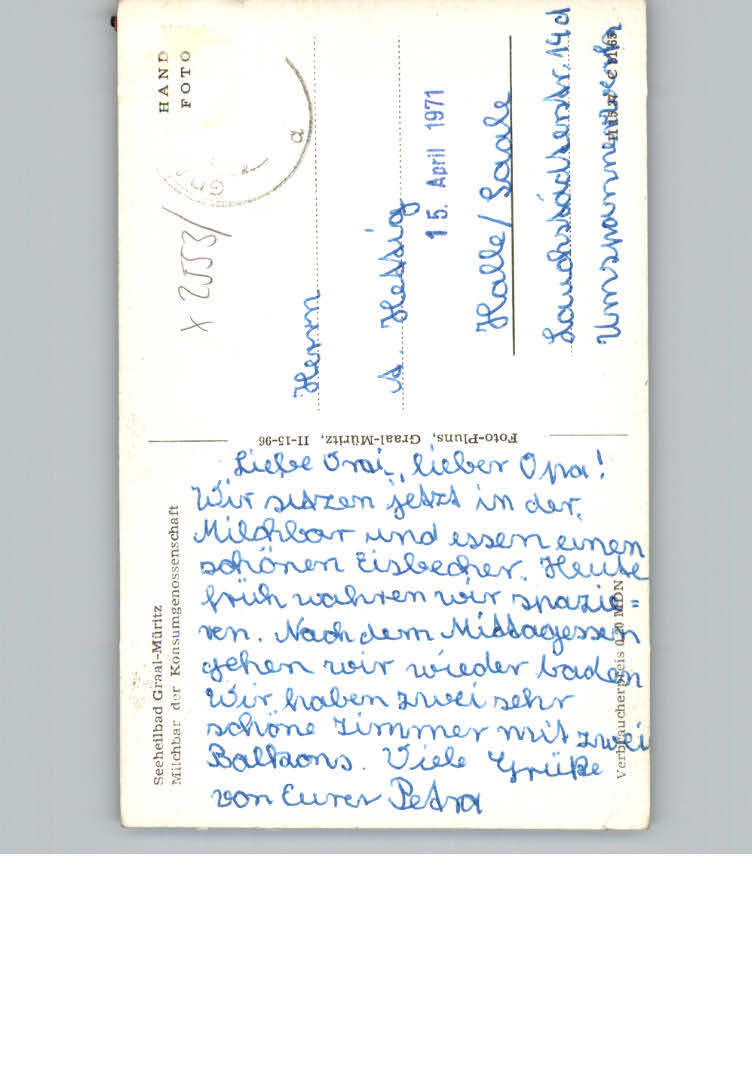 Seeheilbad Graal-Müritz
Milchbar der Konsumgenossenschaft
Liebe Omi, lieber Opa!
Wir sitzen jetzt in der
Milchbar und essen einen
schönen Eisbecher. Heute
früh wahren wir spazie=
ren. Nach dem Mittagessen
gehen wir wieder baden
Wir haben zwei sehr
schöne Zimmer mit zwei
Balkons. Viele Grüße
von Eurer Petra
Verbraucherpreis 0,20 MDN
Foto-Pluns, Graal-Müritz, II-15-96
HAND
FOTO
a
x 2553/
Herrn
A. Hettig
15. April 1971
Halle/Saale
Lauchstädterstr. 14d
Umspannwerk